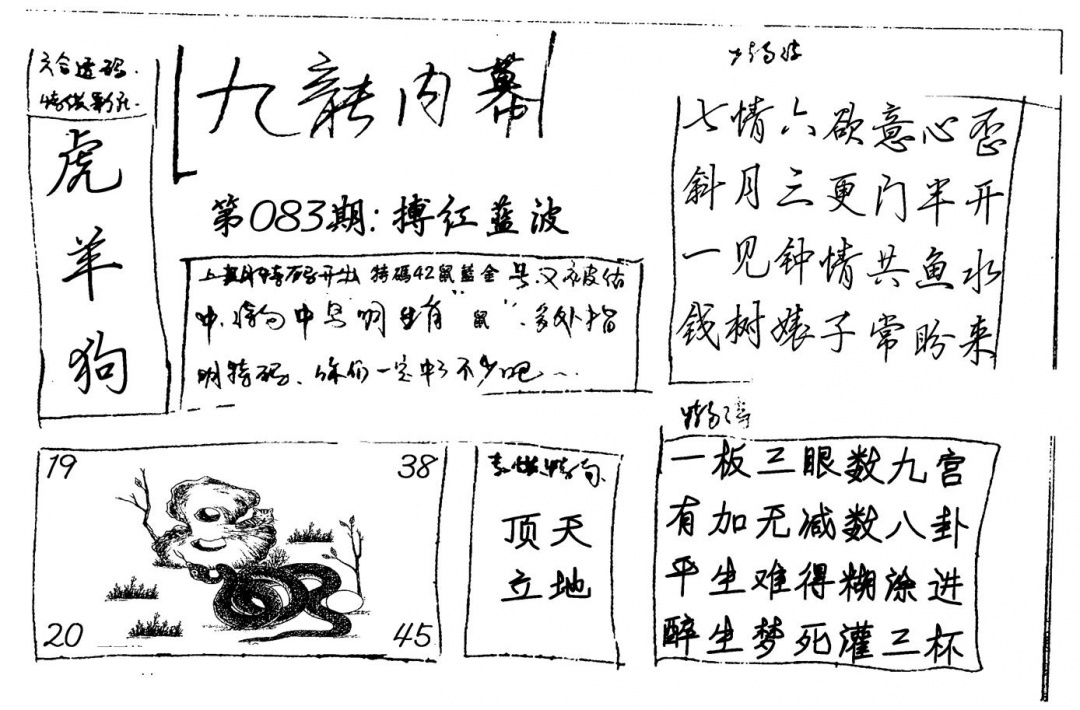 六合透码
虎
羊
狗
九龍内幕
第083期:搏红蓝波
上期特码开出 特碼42鼠藍金 号又被估
中 中 明 有“鼠”.多处指
明特码、你们一定中了不少吧
七情六欲意心歪
斜月三更门半开
一见钟情共鱼水
钱树婊子常盼来
19
38
20
45
顶天
立地
一板三眼数九宫
有加无减数八卦
平生难得糊涂进
醉生梦死灌三杯